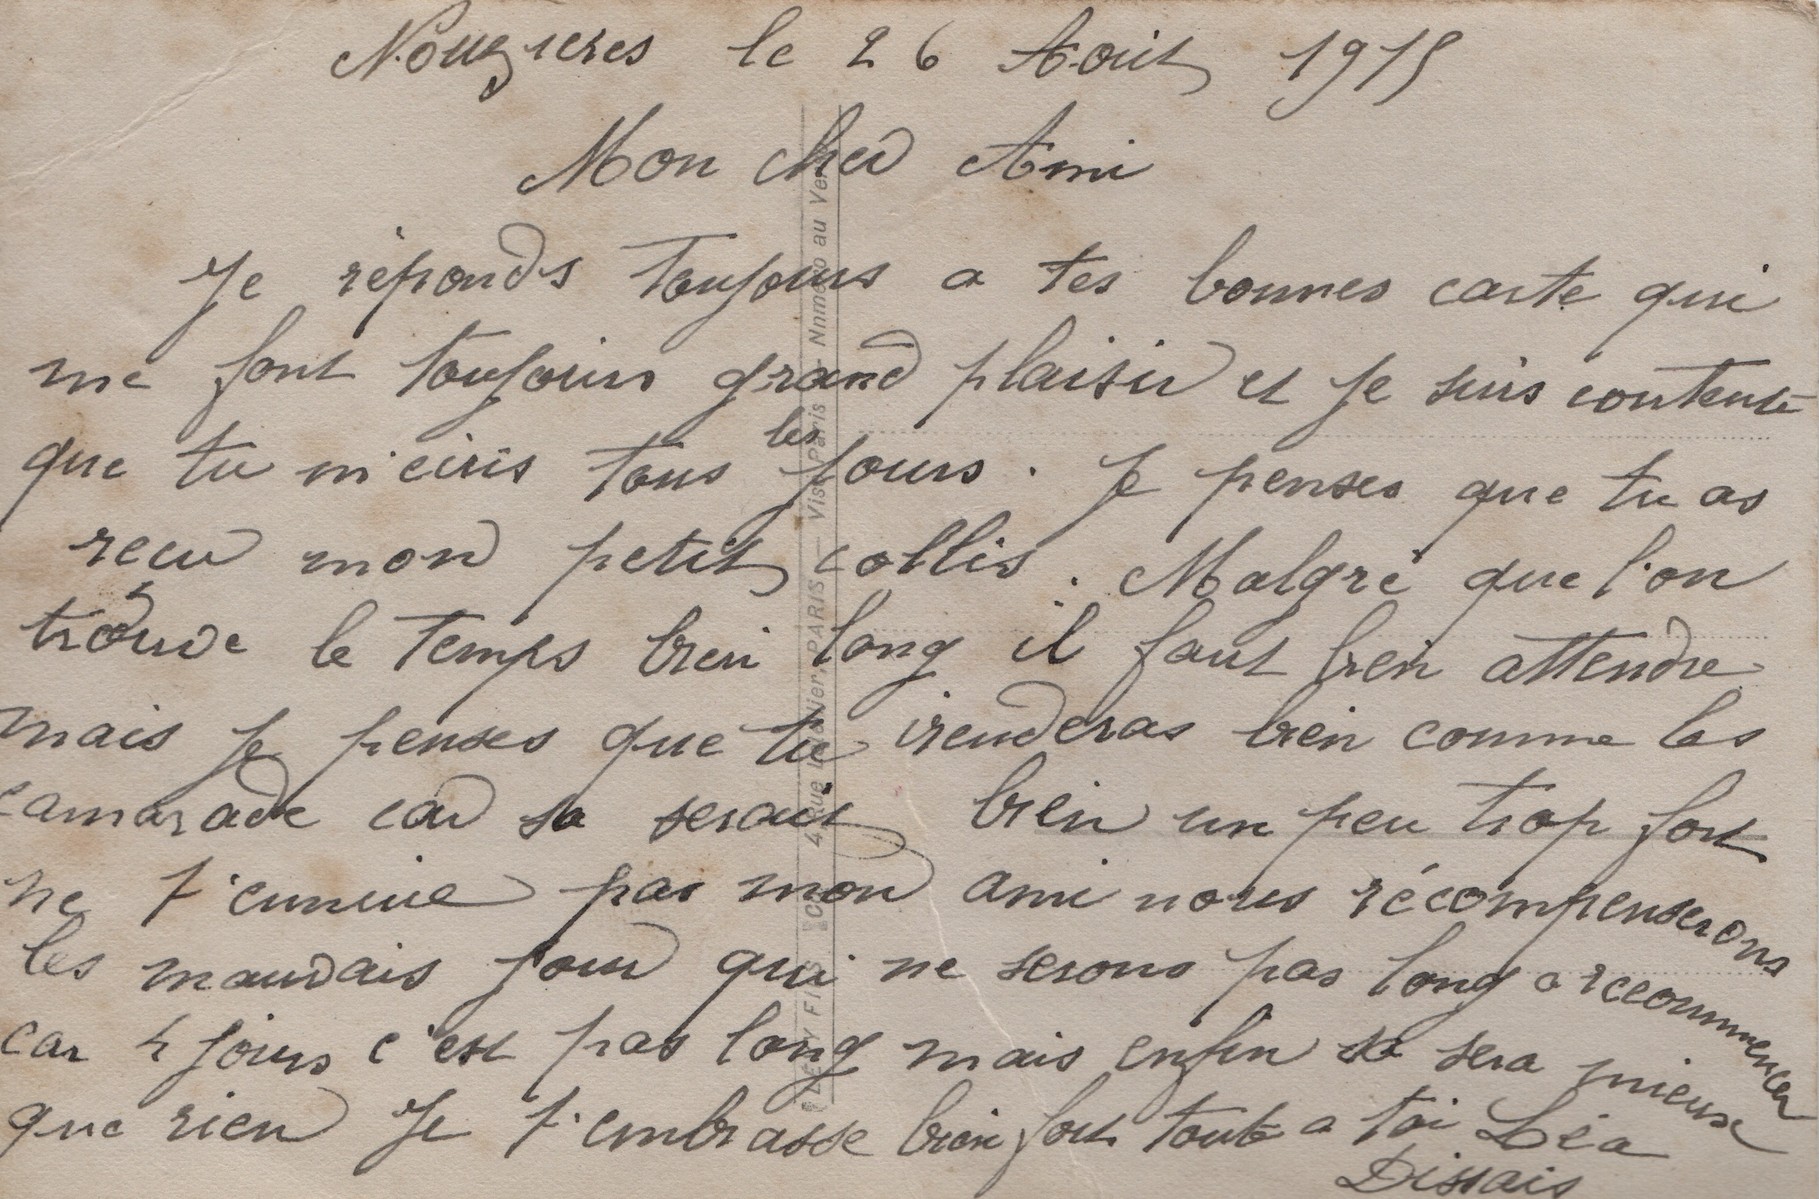 Nouzieres le 26 Août 1915
Mon cher Ami
Je réponds toujours a tes bonnes carte qui
me font toujours grand plaisir et je suis contente
que tu m'ecris tous les jours. Je penses que tu as
recu mon petit collis. Malgré que l'on
trouve le temps bien long il faut bien attendre
mais je penses que tu viendras bien comme les
camarade car sa serait bien un peu trop fort
ne t'ennuie pas mon ami nous récompenserons
les mauvais jour qui ne serons pas long a recommencer
car 4 jours c'est pas long mais enfin sa sera mieux
que rien Je t'embrasse bien fort toute a toi Léa
Dissais
LÉVY FILS & Cie 44, Rue Letellier, PARIS — Visé Paris - Numéro au Verso